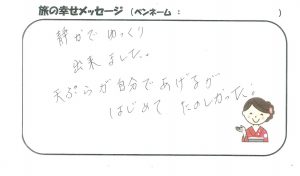 旅の幸せメッセージ (ペンネーム： )
静かでゆっくり
出来ました。
天ぷらが自分であげるが
はじめて たのしかった!